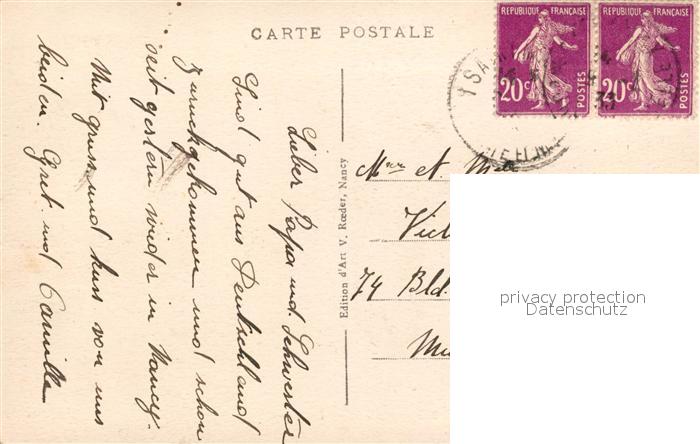 CARTE POSTALE
REPUBLIQUE FRANÇAISE
20c
POSTES
REPUBLIQUE FRANÇAISE
20c
POSTES
Lieber Papa und Schwester
Sind gut aus Deutschland
zurückgekommen und schon
seit gestern wieder in Nancy.
Mit gruss und kuss von uns
beiden. und Camille
Edition d'Art V. Rœder, Nancy
Mr et Melle
Vict
74 Bld.
Mu
privacy protection
Datenschutz